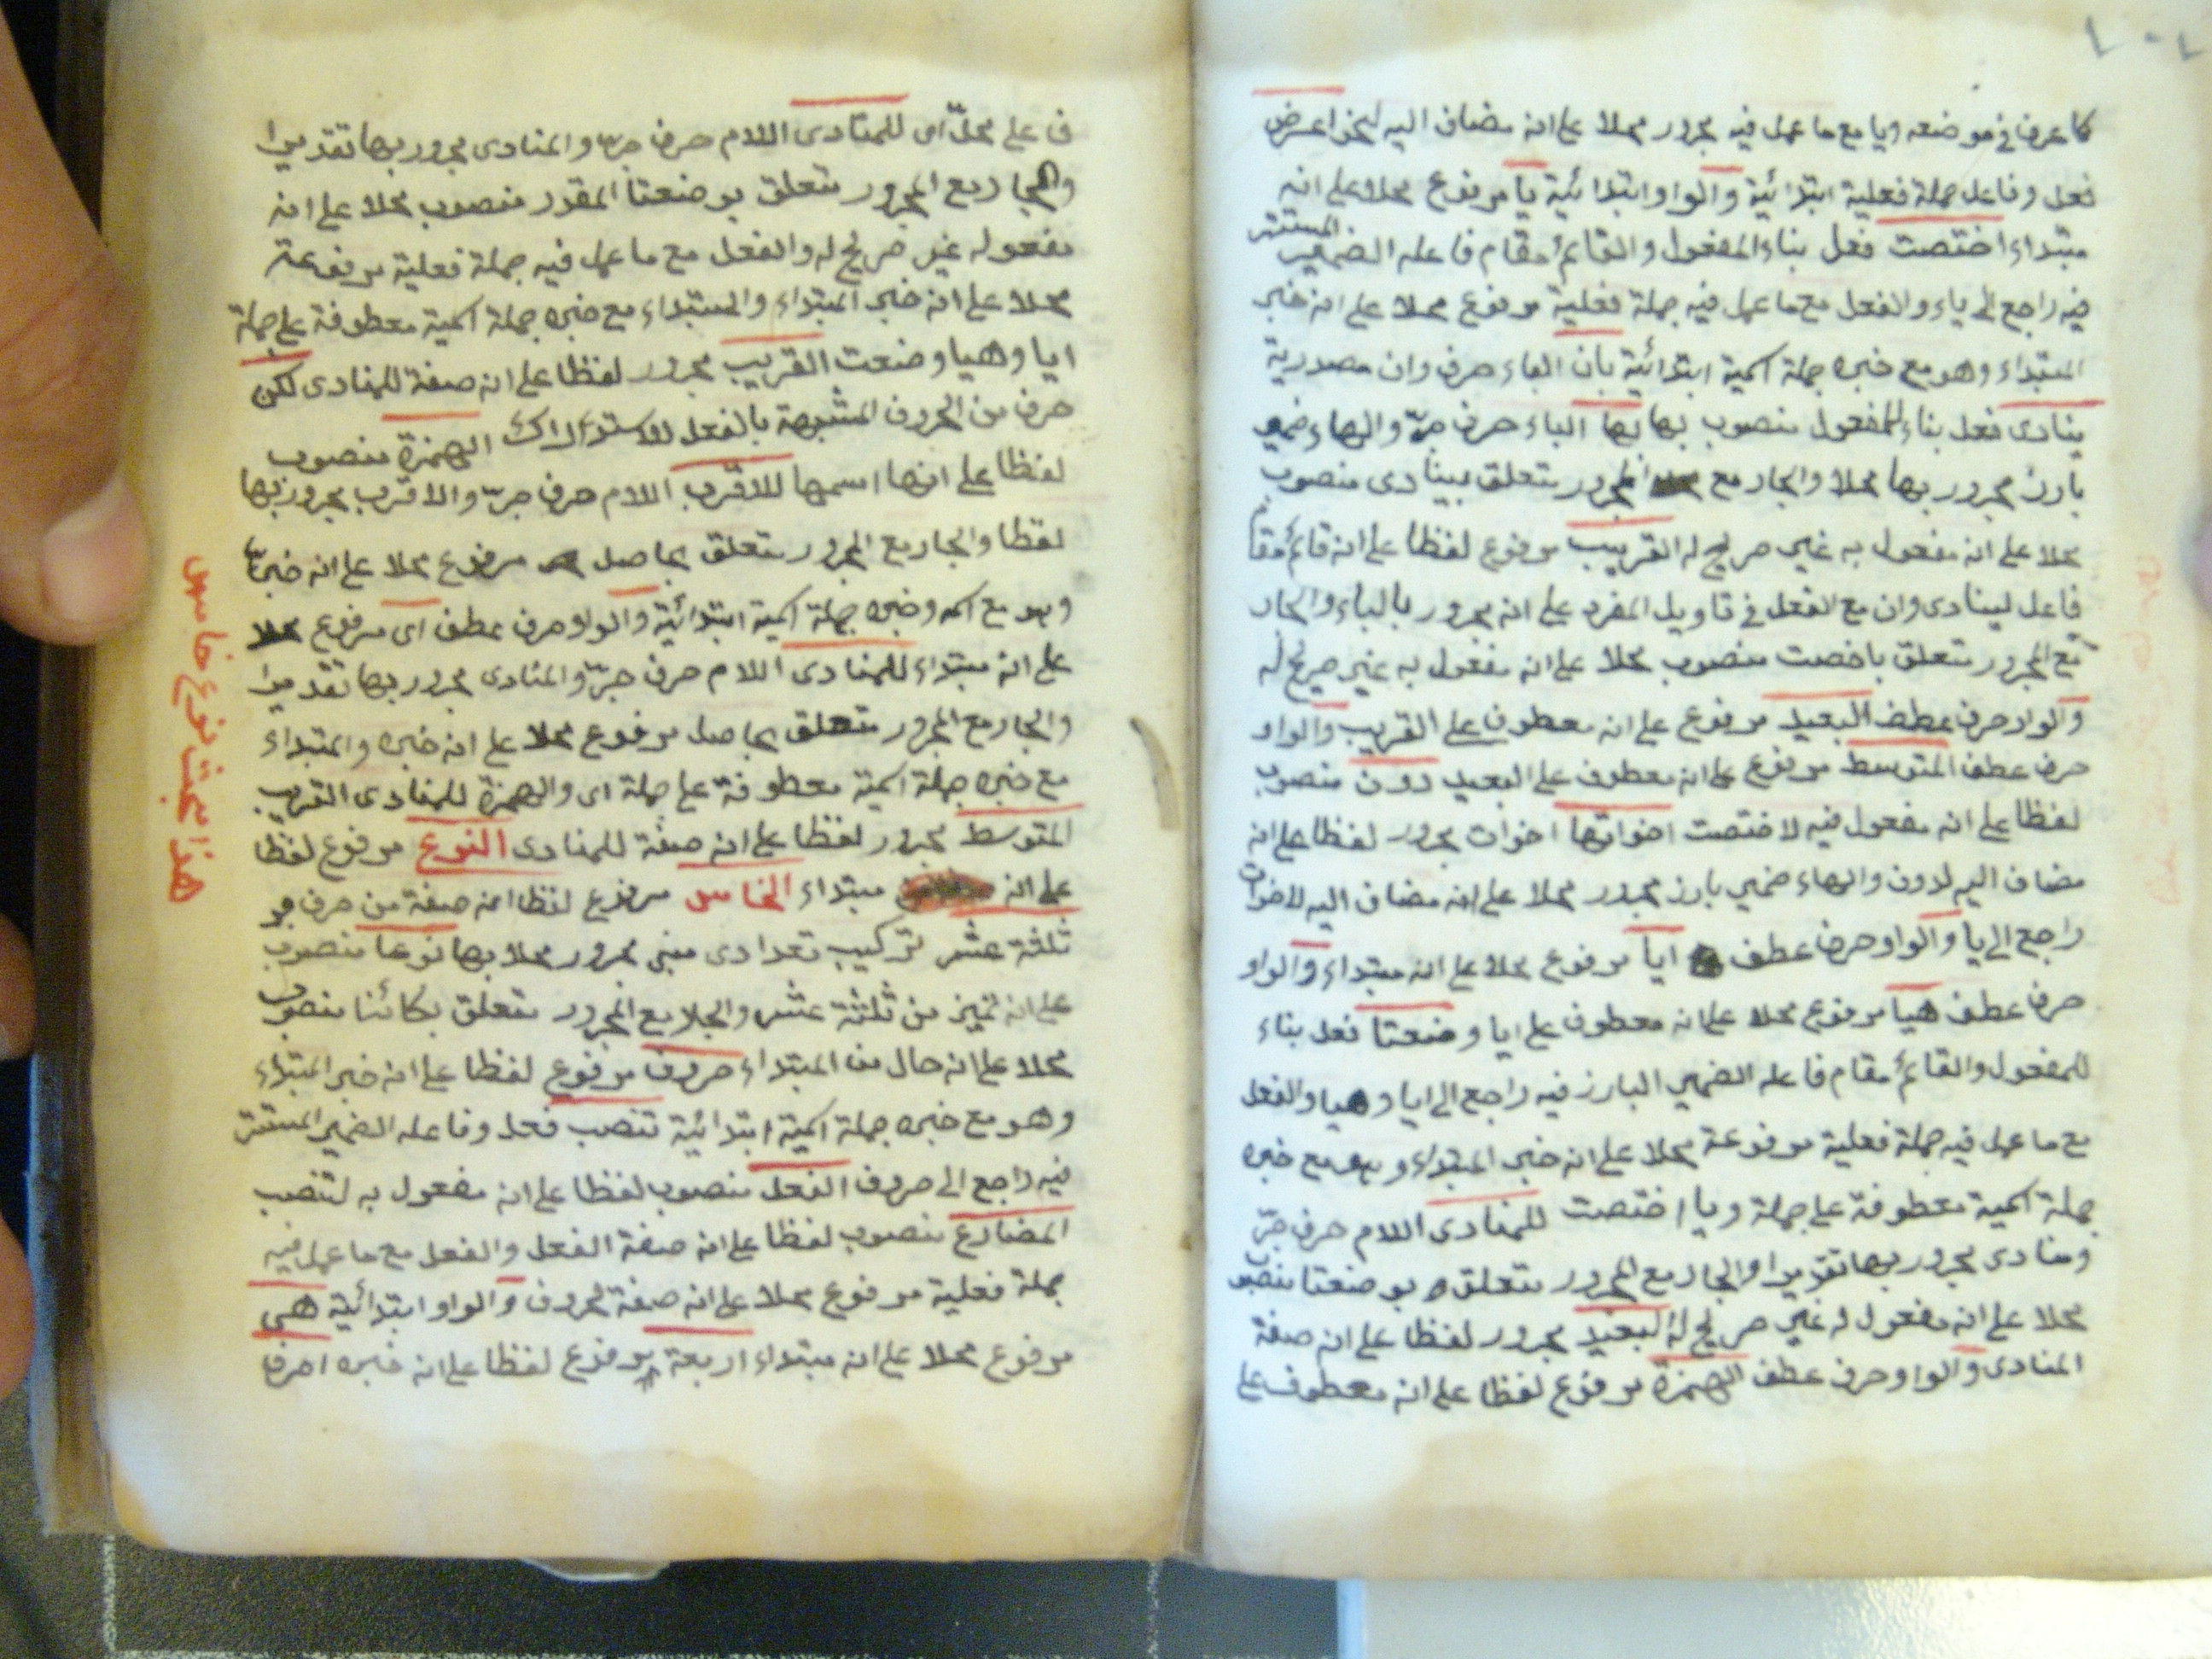 كما عرف في موضعه ويا مع ما عمل فيه مجرور محلا على انه مضاف اليه لنحو اعرض
فعل وفاعل جملة فعلية ابتدائية والواو ابتدائية يا مرفوع محلا على انه
مبتداء اختصت فعل بناء المفعول والقائم مقام فاعله الضمير المستتر
فيه راجع الى ياء والفعل مع ما عمل فيه جملة فعلية مرفوع محلا على انه خبر
المبتداء وهو مع خبره جملة اسمية ابتدائية بان الباء حرف وان مصدرية
ينادى فعل بناء للمفعول منصوب بها بها الباء حرف جرّ والهاء ضمير
بارز مجرور بها محلا والجار مع المجرور متعلق بينادى منصوب
محلا على انه مفعول به غير صريح له القريب مرفوع لفظا على انه قائم مقام
فاعل لينادى وان مع الفعل في تاويل المفرد على انه مجرور بالباء والجار
مع المجرور متعلق باخصت منصوب محلا على انه مفعول به غير صريح له
والواو حرف عطف البعيد مرفوع على انه معطوف على القريب والواو
حرف عطف المتوسط مرفوع على انه معطوف على البعيد دون منصوب
لفظا على انه مفعول فيه لاختصت اخواتها اخوات مجرور لفظا على انه
مضاف اليه لدون والهاء ضمير بارز مجرور محلا على انه مضاف اليه لاخوات
راجع الى يا والواو حرف عطف ايا مرفوع محلا على انه مبتداء والواو
حرف عطف هيا مرفوع محلا على انه معطوف على ايا وضعتا فعل بناء
للمفعول والقائم مقام فاعله الضمير البارز فيه راجع الى ايا وهيا والفعل
مع ما عمل فيه جملة فعلية مرفوعة محلا على انه خبر المبتداء وهو مع خبره
جملة اسمية معطوفة على جملة ويا اختصت للمنادى اللام حرف جرّ
ومنادى مجرور بها تقديرا والجار مع المجرور متعلق بوضعتا منصوب
محلا على انه مفعول له غير صريح له البعيد مجرور لفظا على انه صفة
المنادى والواو حرف عطف الهمزة مرفوع لفظا على انه معطوف على
ف على محلّ اى للمنادى اللام حرف جرّ والمنادى مجرور بها تقديرا
والجار مع المجرور متعلق بوضعتا المقدر منصوب محلا على انه
مفعوله غير صريح له والفعل مع ما عمل فيه جملة فعلية مرفوعة
محلا على انه خبر المبتداء والمبتداء مع خبره جملة اسمية معطوفة على جملة
ايا وهيا وضعت القريب مجرور لفظا على انه صفة للمنادى لكن
حرف من الحروف المشبهة بالفعل للاستدراك الهمزة منصوب
لفظا على انها اسمها للاقرب اللام حرف جرّ والاقرب مجرور بها
لفظا والجار مع المجرور متعلق بحاصل مرفوع محلا على انه خبرها
وهو مع اسمه وخبره جملة اسمية ابتدائية والواو حرف عطف اى مرفوع محلا
على انه مبتداء للمنادى اللام حرف جرّ والمنادى مجرور بها تقديرا
والجار مع المجرور متعلق بحاصل مرفوع محلا على انه خبره والمبتداء
مع خبره جملة اسمية معطوفة على جملة اى والهمزة للمنادى القريب
المتوسط مجرور لفظا على انه صفة للمنادى النوع مرفوع لفظا
على انه مبتداء الخامس مرفوع لفظا انه صفة من حرف جر
ثلثة عشر تركيب تعدادى مبنى مجرور محلا بها نوعا منصوب
على انه تميز من ثلثة عشر والجار مع المجرور متعلق بكائنا منصوب
محلا على انه حال من المبتداء حروف مرفوع لفظا على انه خبر المبتداء
وهو مع خبره جملة اسمية ابتدائية تنصب فعل وفاعله الضمير المستتر
فيه راجع الى حروف الفعل منصوب لفظا على انه مفعول به لتنصب
المضارع منصوب لفظا على انه صفة الفعل والفعل مع ما عمل فيه
جملة فعلية مرفوع محلا على انه صفة لحروف والواو ابتدائية هى
مرفوع محلا على انه مبتداء اربعة مرفوع لفظا على انه خبره احرف
هذا بحث نوع خامس